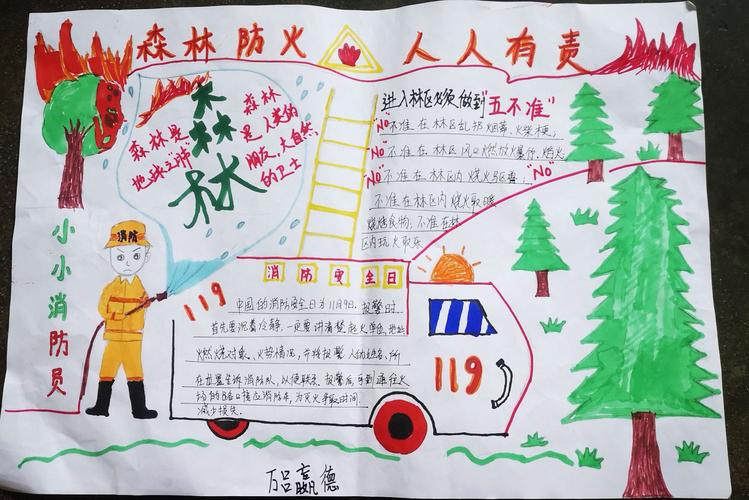 森林防火 人人有责
森林是
地球之肺
森
林
森林
是人类的
朋友,大自然
的卫士
进入林区必须做到"五不准"
"No"不准在林区乱扔烟蒂、火柴梗;
"No"不准在林区风口燃放爆竹、焰火
"No"不准在林区内烧火驱兽;"No"
不准在林区内烧火取暖
烧烤食物,不准在林
区内玩火取乐
小小消防员
消防
119
消防安全日
中国的消防安全日为11月9日.报警时
首先要沉着冷静,一定要讲清楚起火单位、地址
燃烧对象、火势情况,并将报警人的姓名、所
在位置告诉消防队,以便联系.报警后,可到通往火
场的路口接应消防车,为灭火争取时间
减少损失.
119
德